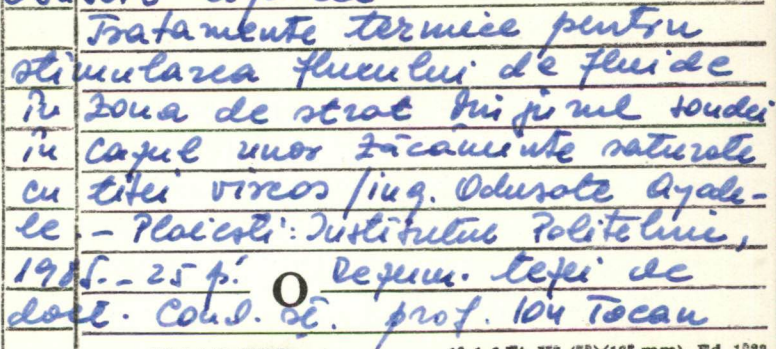 Tratamente termice pentru
stimularea fluxului de fluide
în zona de strat din jurul sondei
în cazul unor zăcăminte saturate
cu țiței vîscos / ing. Odusote Ayode-
le. - Ploiești: Institutul Politehnic,
1985. - 25 p. Rezum. tezei de
doct. Cond. șt. prof. Ion Tocan